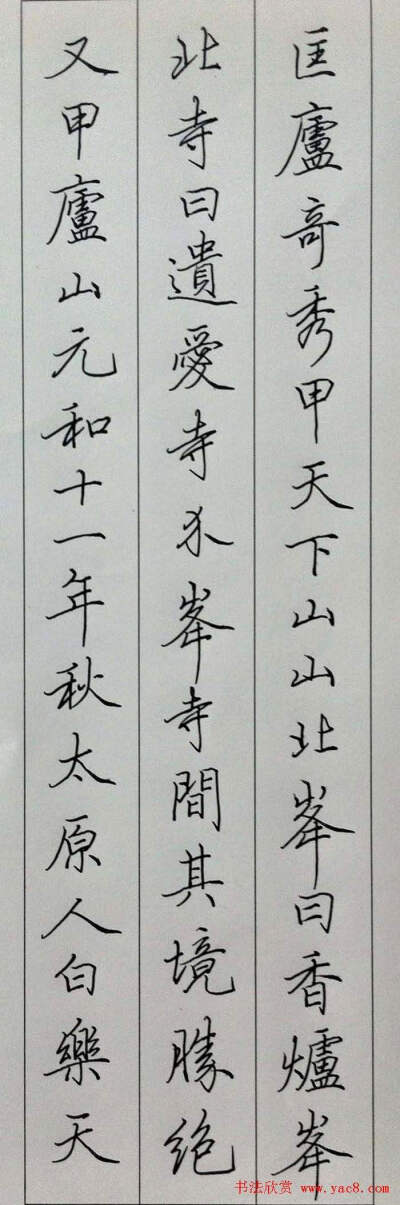 匡廬奇秀甲天下山山北峯曰香爐峯
北寺曰遺愛寺介峯寺間其境勝绝
又甲廬山元和十一年秋太原人白樂天
书法欣赏 www.yac8.com